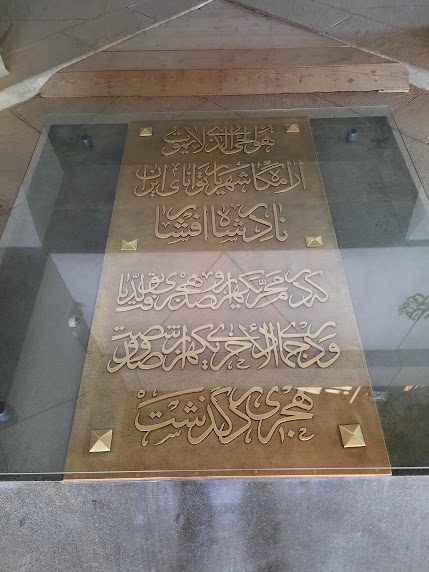 هو الحی الذی لایموت
آرامگاه شهریار توانای ایران
نادرشاه افشار
که در محرم یکهزار و صد هجری
و در جمادی الاخری یکهزار و صد و شصت
هجری درگذشت